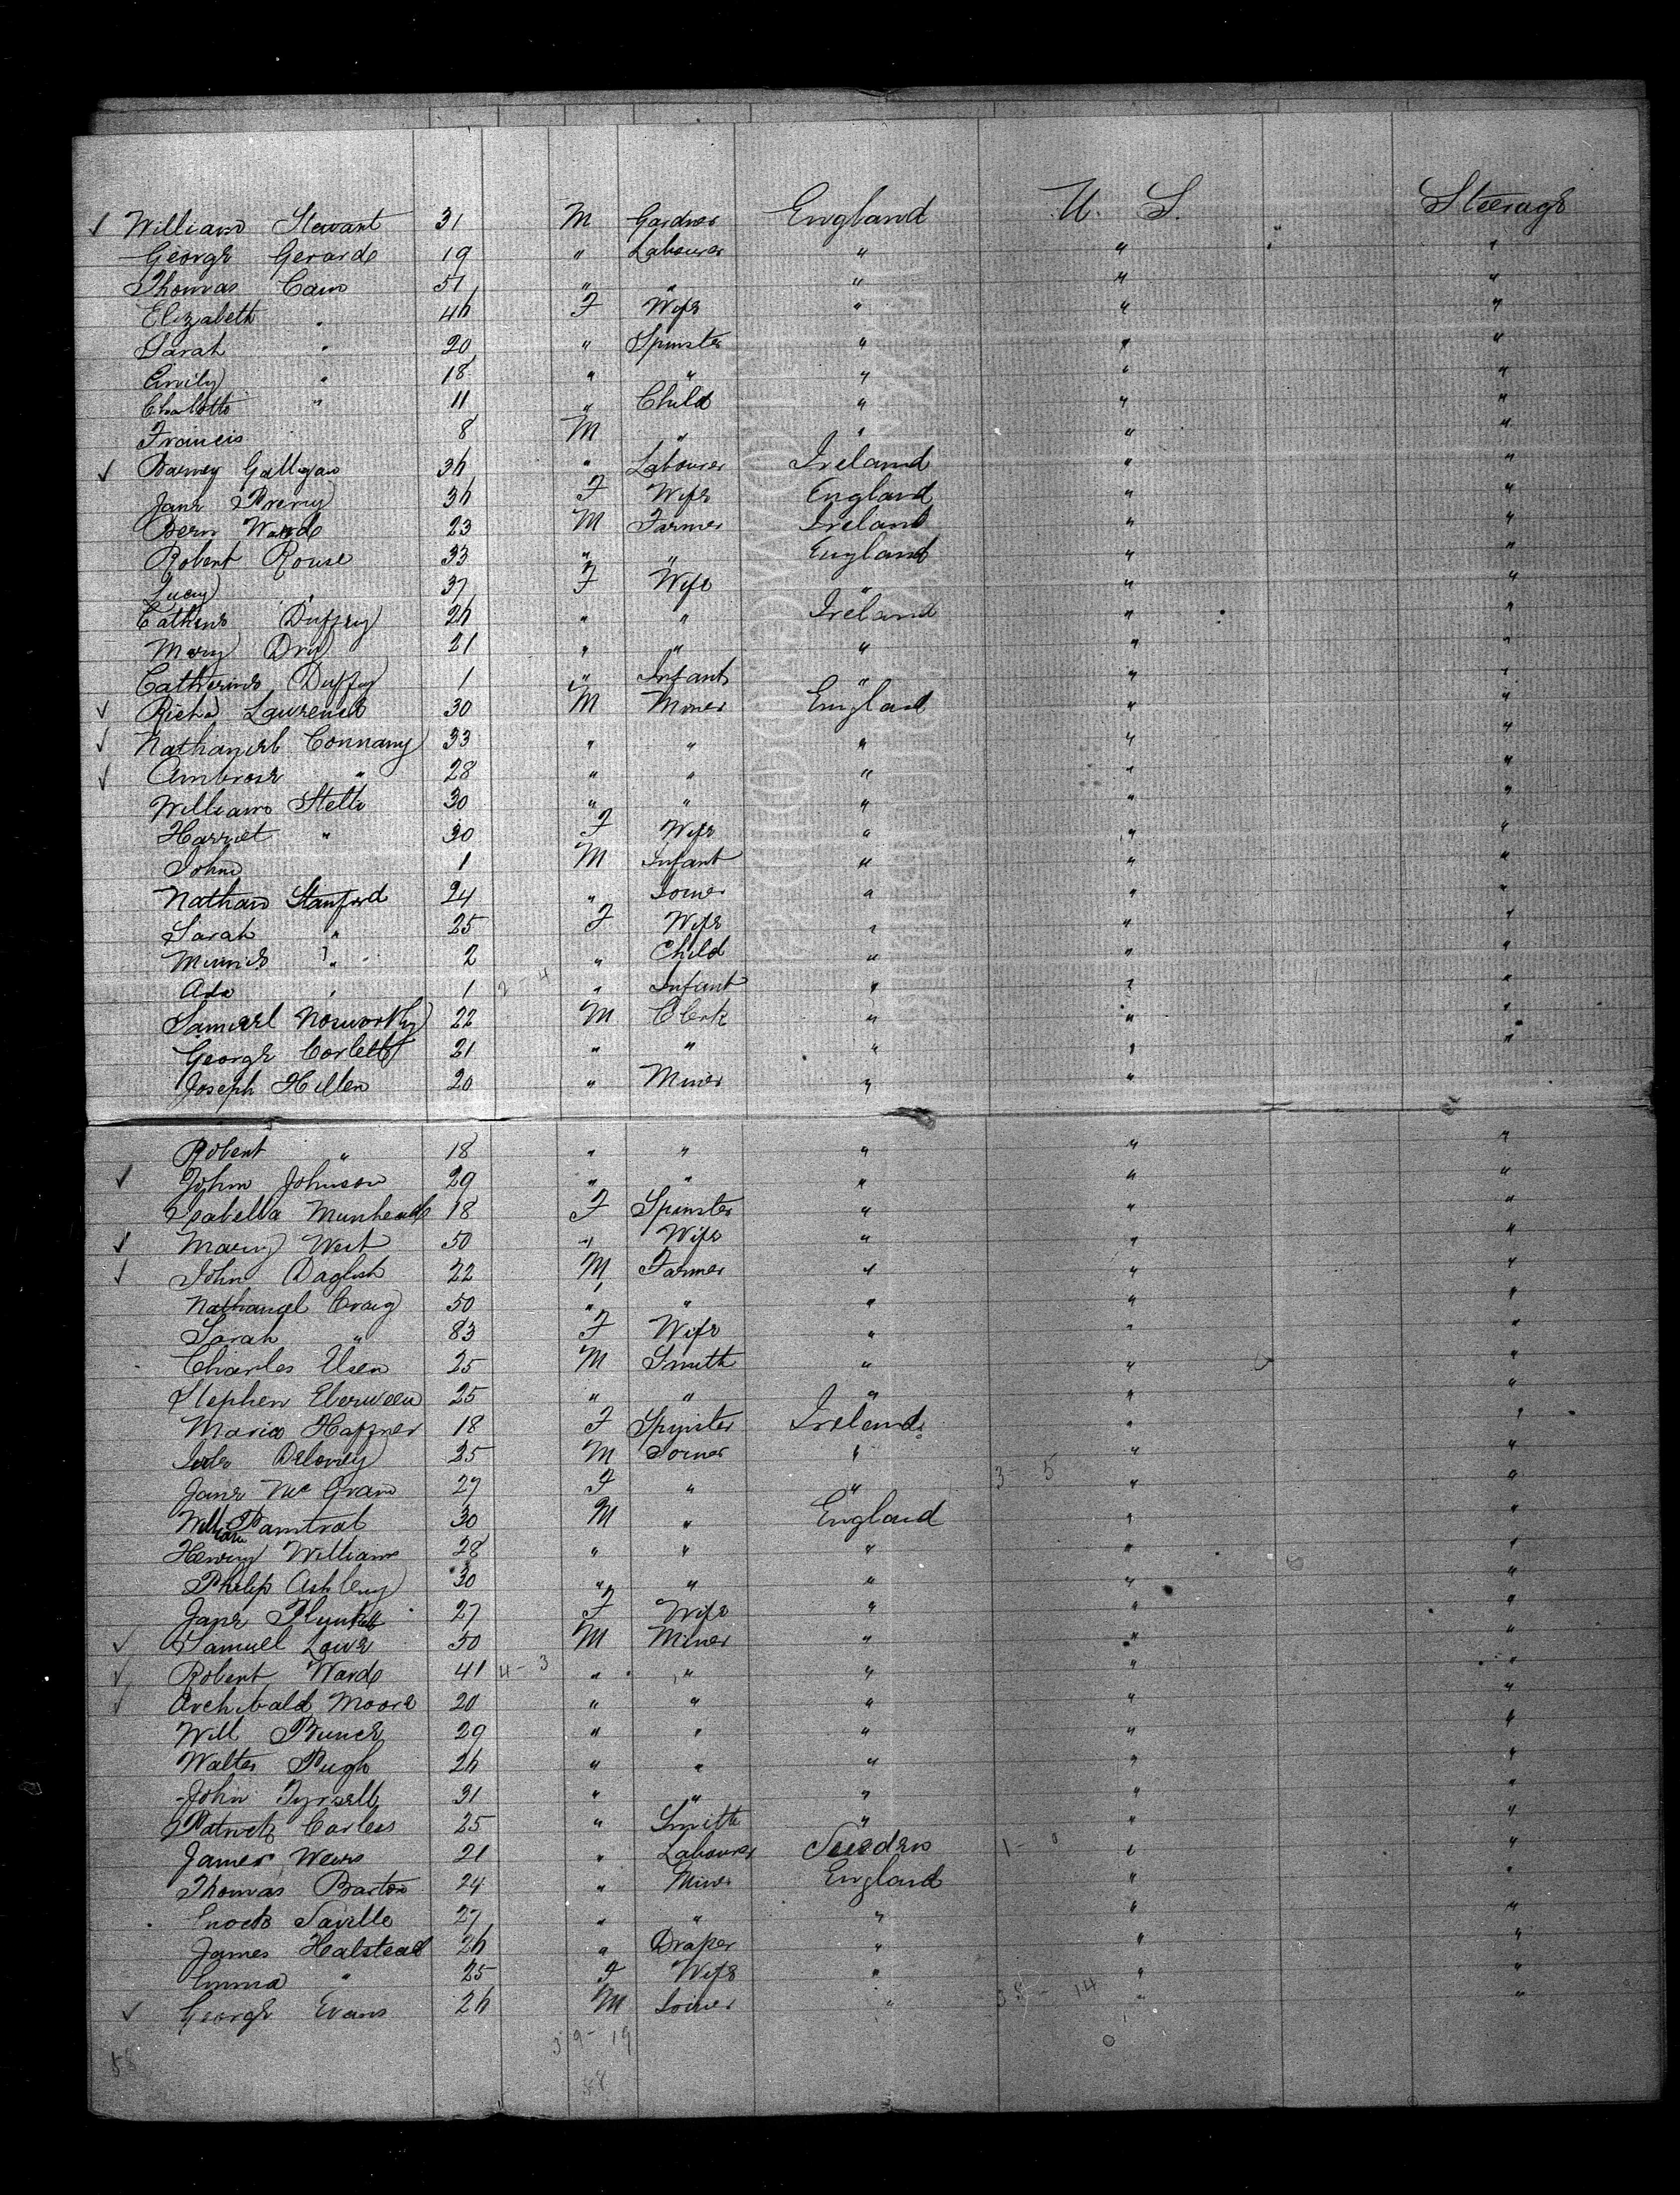 ✓ William Stewart 31 M Gardner England U. S. Steerage
George Gerarde 19 " Labourer " " "
Thomas Cain 51 " " " " "
Elizabeth " 46 F Wife " " "
Sarah " 20 " Spinster " " "
Emily " 18 " " " " "
Charlotte " 11 " Child " " "
Francis 8 M " " " "
✓ Barney Galligan 36 " Labourer Ireland " "
Jane 36 F Wife England " "
Bern Warde 23 M Farmer Ireland " "
Robert Rouse 33 " " England " "
Lucy " 37 F Wife " " "
Cathrine Duffey 26 " " Ireland " "
Mary 21 " " " " "
Catherine Duffey 1 " Infant " " "
✓ Richd Lawrence 30 M Miner England " "
✓ Nathaniel Connany 33 " " " " "
✓ Ambrose " 28 " " " " "
William Stelle 30 " " " " "
Harriet " 30 F Wife " " "
John 1 M Infant " " "
Nathan Stanford 24 " Joiner " " "
Sarah " 25 F Wife " " "
Minnie " 2 " Child " " "
Ada " 1 2-4 " Infant " " "
Samuel Nosworthy 22 M Clerk " " "
George Corlett 21 " " " " "
Joseph Hillen 20 " Miner " "
Robert " 18 " " " " "
✓ John Johnson 29 " " " " "
Isabella Munheade 18 F Spinster " " "
✓ Mary West 50 " Wife " " "
✓ John Daglish 22 M Farmer " " "
Nathanael Craig 50 " " " " "
Sarah " 83 F Wife " " "
Charles Usen 25 M Smith " " "
Stephen Eberween 25 " " " " "
Maria Haffner 18 F Spinster Ireland " "
Deloney 25 M Joiner " " "
Jane Mc Gran 27 F " " 3-5 " "
William Pantrat 30 M " England " "
Henry Williams 28 " " " " "
Philip Ashley 30 " " " " "
Jane Plunkett 27 F Wife " " "
✓ Samuel Lowe 50 M Miner " " "
✓ Robert Warde 41 4-3 " " " " "
✓ Archibald Moore 20 " " " " "
Will Bunce 29 " " " " "
Walter Pugh 26 " " " " "
John Tyrsell 31 " " " " "
Patrick Carless 25 " Smith " " "
James Weirs 21 " Labourer Sweden 1-0 " "
Thomas Barton 24 " Miner England " "
Enock Saville 27 " " " " "
James Halstead 26 " Draper " " "
Emma " 25 F Wife " " "
✓ George Evans 26 M Joiner " 35-14 " "
39-19
58 58